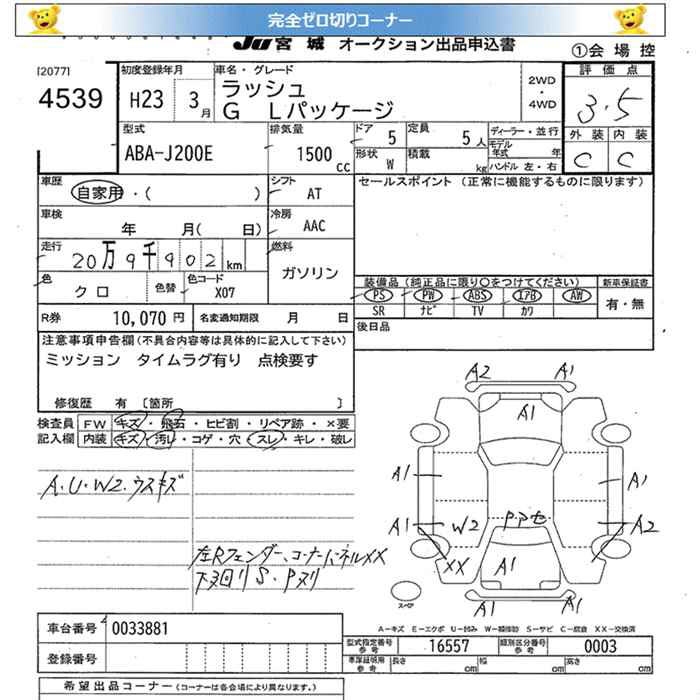 完全ゼロ切りコーナー
JU 宮 城 オークション出品申込書
①会 場 控
[2077]
4539
初度登録年月
H23 3月
車名・グレード
ラッシュ
G Lパッケージ
2WD
・
4WD
評 価 点
3.5
外 装 内 装
C C
型式
ABA-J200E
排気量
1500 CC
ドア 5
定員 5人
ディーラー・並行
形状 W
積載 kg
モデル年式 年
ハンドル 左・右
車歴
自家用・( )
シフト
AT
セールスポイント (正常に機能するものに限ります)
車検
年 月( 日)
冷房
AAC
走行
20万9千902km
燃料
ガソリン
色
クロ
色替
色コード
X07
装備品(純正品に限り○をつけてください) 新車保証書
PS PW ABS エアB AW 有・無
SR ナビ TV カワ
R券 10,070 円
名変通知期限 月 日
後日品
注意事項申告欄(不具合内容等は具体的に記入して下さい)
ミッション タイムラグ有り 点検要す
修復歴 有 〔箇所 〕
検査員 FW キズ・飛石・ヒビ割・リペア跡・×要
記入欄 内装 キズ・汚レ・コゲ・穴・スレ・キレ・破レ
A.U.W2.ウスキズ
左Rフェンダー、コーナーパネルXX
下廻り S・Pヌリ
A2 A1
A1
A1 A1
A1 W2 P.アセ A2
XX A1
A1 A1
スペア
A－キズ E－エクボ U－凹み W－補修跡 S－サビ C－腐食 XX－交換済
車台番号 0033881
型式指定番号 参考 16557
類別区分番号 参考 0003
登録番号
車庫証明用 参考 長さ cm 幅 cm 高さ cm
希望出品コーナー(コーナーは各会場により異なります。)